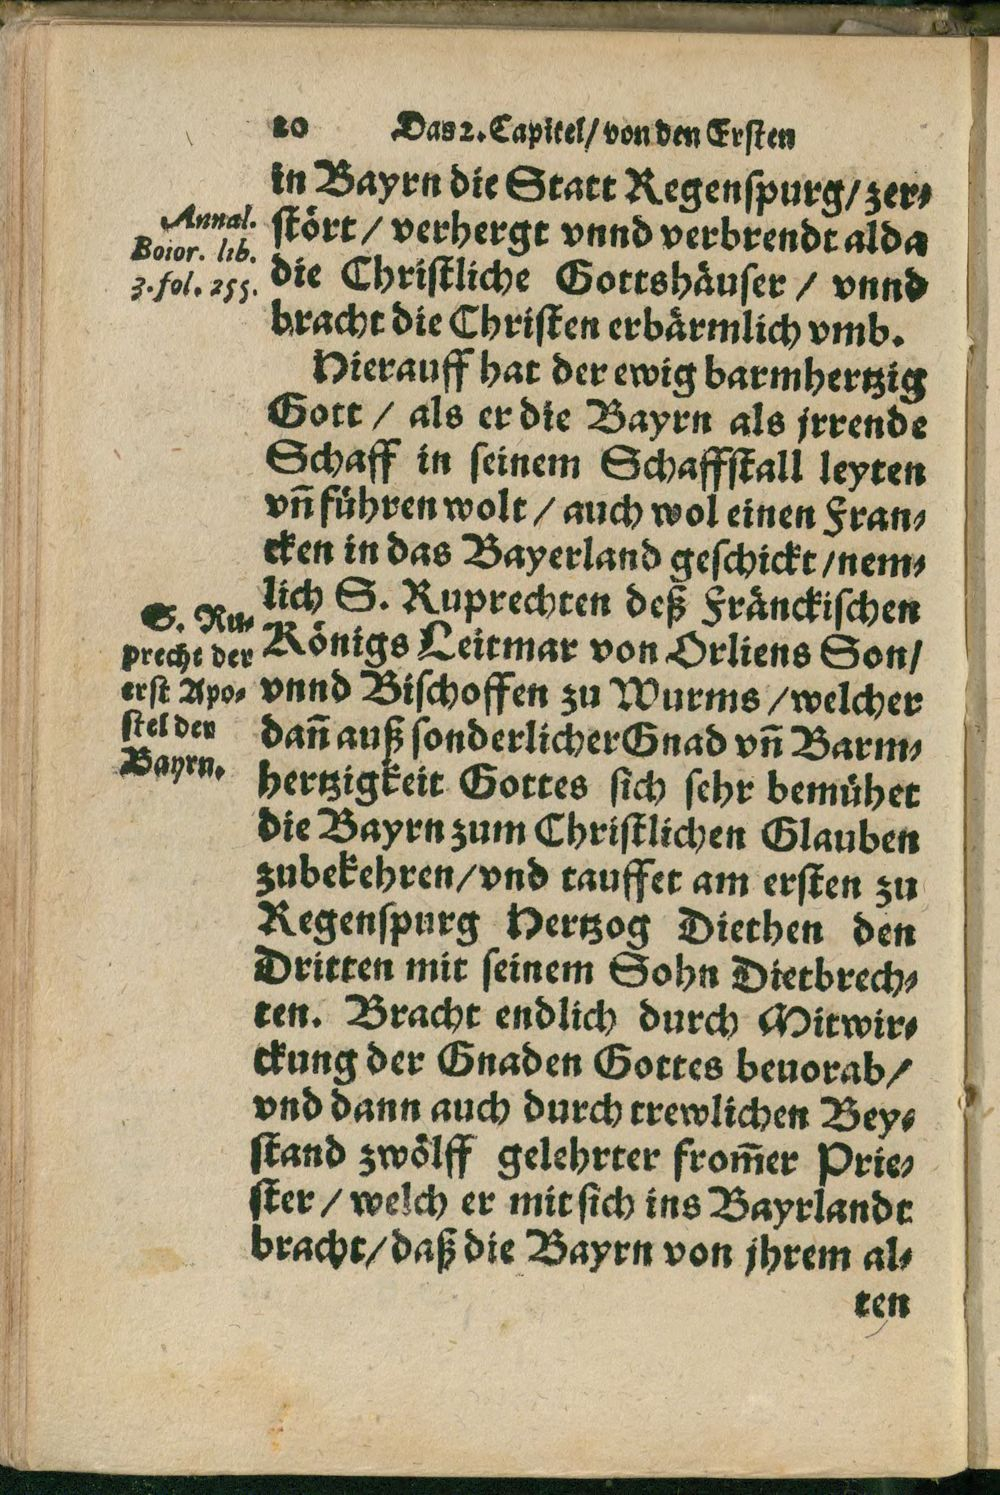 20 Das 2. Capitel/ von den Ersten
in Bayrn die Statt Regenspurg/ zer-
stört / verhergt vnnd verbrendt alda
die Christliche Gottshäuser / vnnd
bracht die Christen erbärmlich vmb.
Annal.
Boior. lib.
3. fol. 255.
Hierauff hat der ewig barmhertzig
Gott / als er die Bayrn als jrrende
Schaff in seinem Schaffstall leyten
vñ führen wolt / auch wol einen Fran-
cken in das Bayerland geschickt / nem-
lich S. Ruprechten deß Fränckischen
Königs Leitmar von Orliens Son/
vnnd Bischoffen zu Wurms / welcher
dañ auß sonderlicher Gnad vñ Barm-
hertzigkeit Gottes sich sehr bemühet
die Bayrn zum Christlichen Glauben
zubekehren/ vnd tauffet am ersten zu
Regenspurg Hertzog Diethen den
Dritten mit seinem Sohn Dietbrech-
ten. Bracht endlich durch Mitwir-
ckung der Gnaden Gottes beuorab/
vnd dann auch durch trewlichen Bey-
stand zwölff gelehrter from̃er Prie-
ster / welch er mit sich ins Bayrlandt
bracht/ daß die Bayrn von jhrem al-
ten
S. Ru-
precht der
erst Apo-
stel der
Bayrn.